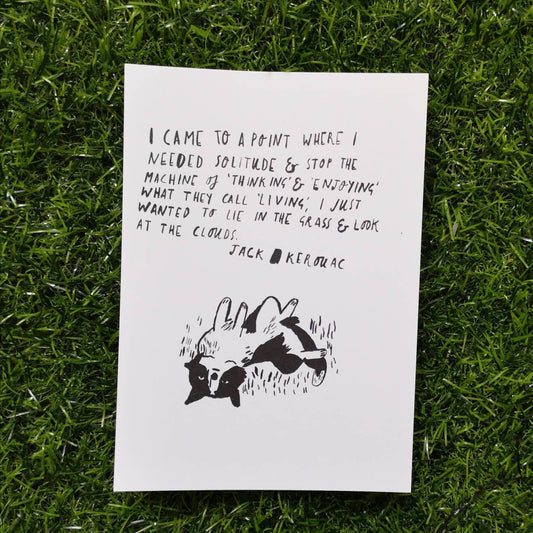 I CAME TO A POINT WHERE I
NEEDED SOLITUDE & STOP THE
MACHINE of 'THINKING' & 'ENJOYING'
WHAT THEY CALL 'LIVING', I JUST
WANTED TO LIE IN THE GRASS & LOOK
AT THE CLOUDS.
JACK KEROUAC